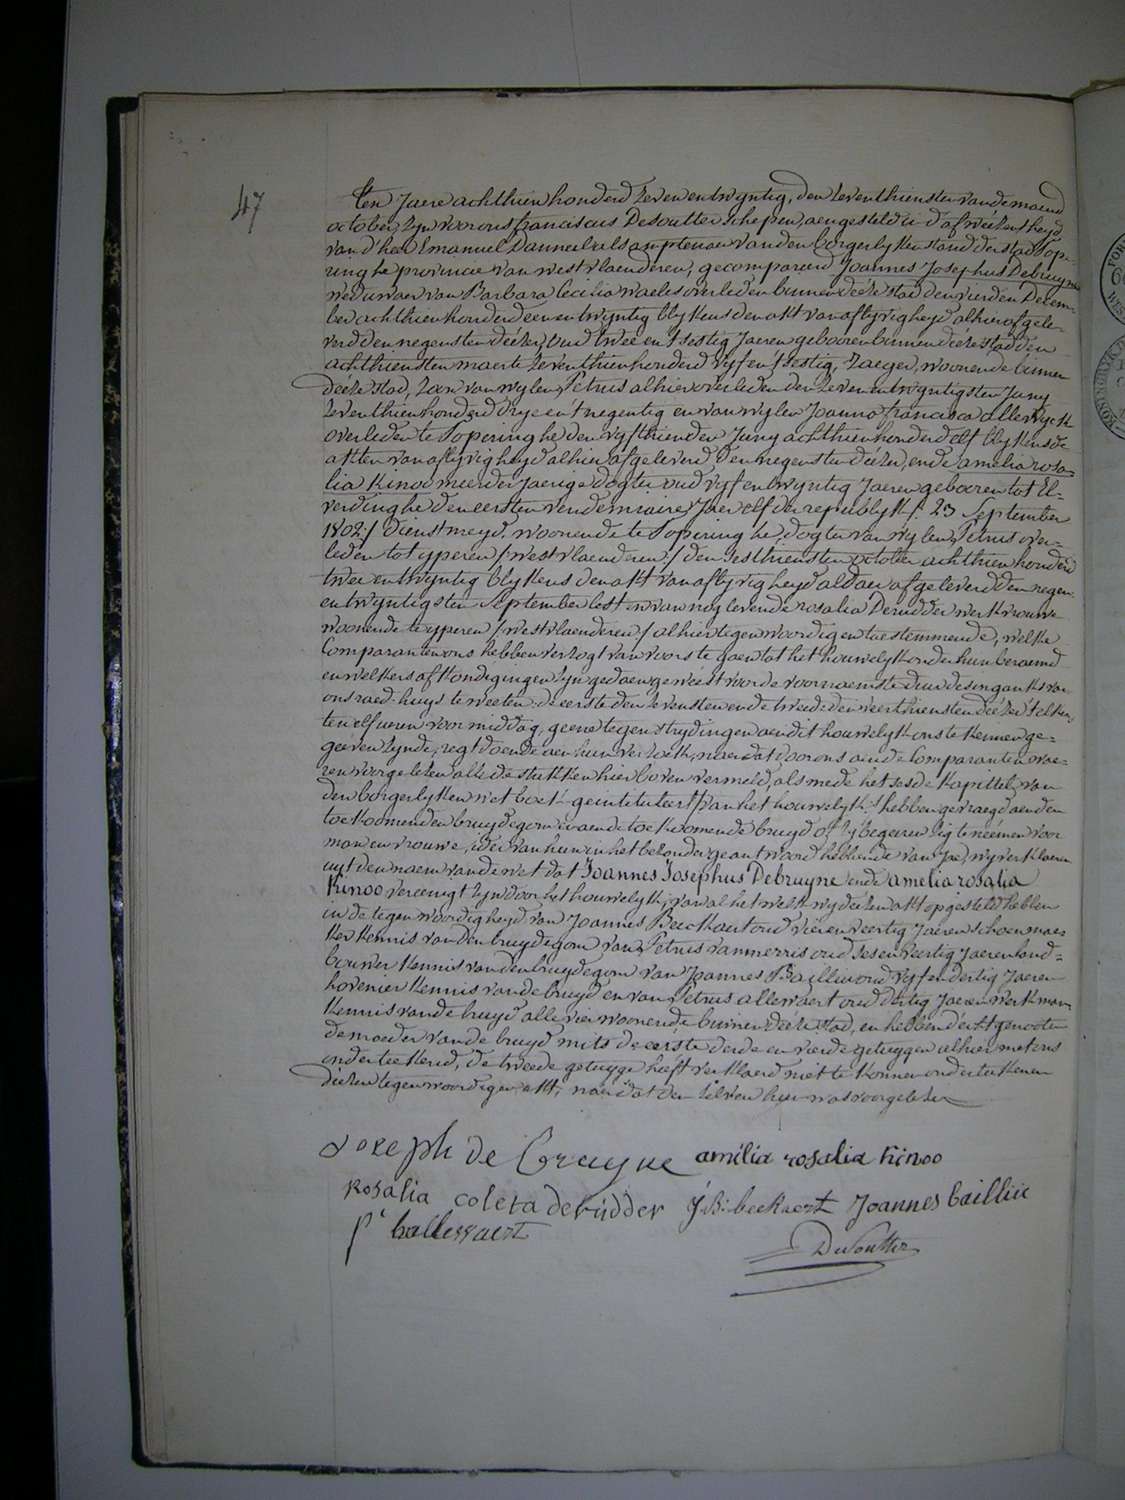 47
Ten Jaere achthien honderd zeven en twyntig, den zeventhiensten van de maend
october, zyn voor ons franciscus Desoutter schepen, aengesteld in d'afwezentheyd
van d'heer Emanuel Vanneufville amptenaer van den borgerlyken stand der stad Pope-
ringhe provincie van westvlaenderen, gecompareerd Joannes Josephus Debruyne
weduwaer van Barbara Cecilia Waeles overleden binnen deéze stad den vierden Decem-
ber achthien honderd een en twyntig blykens den akt van aflyvigheyd alhier afgele-
verd den negensten deézer, oud twee en t'sestig Jaeren gebooren binnen deéze stad den
achthiensten maerte zeventhien honderd vyf en t'sestig, zaeger, woonende binnen
deéze stad, zoon van wylen Petrus alhier overleden den zeven en twyntigsten Juny
zeventhien honderd drye en t'negentig en van wylen Joanna francisca allewyck
overleden te Poperinghe den vyfthienden Juny achthien honderd elf blykens de
akten van aflyvigheyd alhier afgeleverd den negensten deézer, ende amelia rosa-
lia Kinoo meerderjaerige dogter oud vyf en twyntig Jaeren gebooren tot El-
verdinghe den eersten vendemiaire Jaer elf der republyk /: 23 September
1802 :/ dienstmeyd, woonende te Poperinghe, dogter van wylen Petrus over-
leden tot yperen / westvlaenderen / den sesthiensten october achthien honderd
twee en twyntig blykens den akt van aflyvigheyd aldaer afgeleverd den negen-
en twyntigsten September lest en van nog levende rosalia Deridder werkvrouwe
woonende te yperen / westvlaenderen / alhier tegenwoordig en toestemmende, welke
Comparanten ons hebben verzogt van voorste gaen tot het houwelyk onder hun beraemd
en welkers afkondigingen zyn gedaen geweést voor de voornaemste deur des ingangs van
ons raed-huys te weéten: de eerste den zevensten ende tweede den veerthiensten deézer t'elken
ten elf ueren voormiddag, geene tegenstrydingen aen dit houwelyk ons te kennen ge-
geéven zynde, regt doende aen hun verzoek, naer dat door ons aen de Comparanten wae-
ren voorgelezen alle de stukken hier boven vermeld, als mede het sesde kapittel van
den borgerlyken wetboek geintituleert /: van het houwelyk :/ hebben gevraegd aen den
toekoomenden bruydegom en aen de toekoomende bruyd of zy begeeren zig te neémen voor
man en vrouwe, ider van hun in het bezonder geantwoord hebbende van Jae, wy verklaeren
uyt den naem van de wet dat Joannes Josephus Debruyne ende amelia rosalia
Kinoo vereenigt zyn door het houwelyk; van al het welk wy deézen akt opgesteld hebben
in de tegenwoordigheyd van Joannes Beeckaert oud vier en veertig Jaeren schoenmae-
ker kennis van den bruydegom van Petrus vanmerris oud ses en veertig Jaeren land-
bouwer kennis van den bruydegom van Joannes Baillieu oud vyf en dertig Jaeren
hovenier kennis van de bruyd en van Petrus allewaert oud dertig Jaeren werkman
kennis van de bruyd alle vier woonende binnen deéze stad, en hebben d'echtgenooten
de moeder van de bruyd mits de eerste derde en vierde getuygen alhier met ons
onderteekend, de tweede getuyge heéft verklaerd niet te konnen onderteekenen
diézen tegenwoordigen akt, naer dat den zelven hun was voorgelezen
Joseph de Bruyne amilia rosalia kinoo
Rosalia coleta deridder J:B: beekaert Joannes baillie
Pr ballewaert
DeSoutter